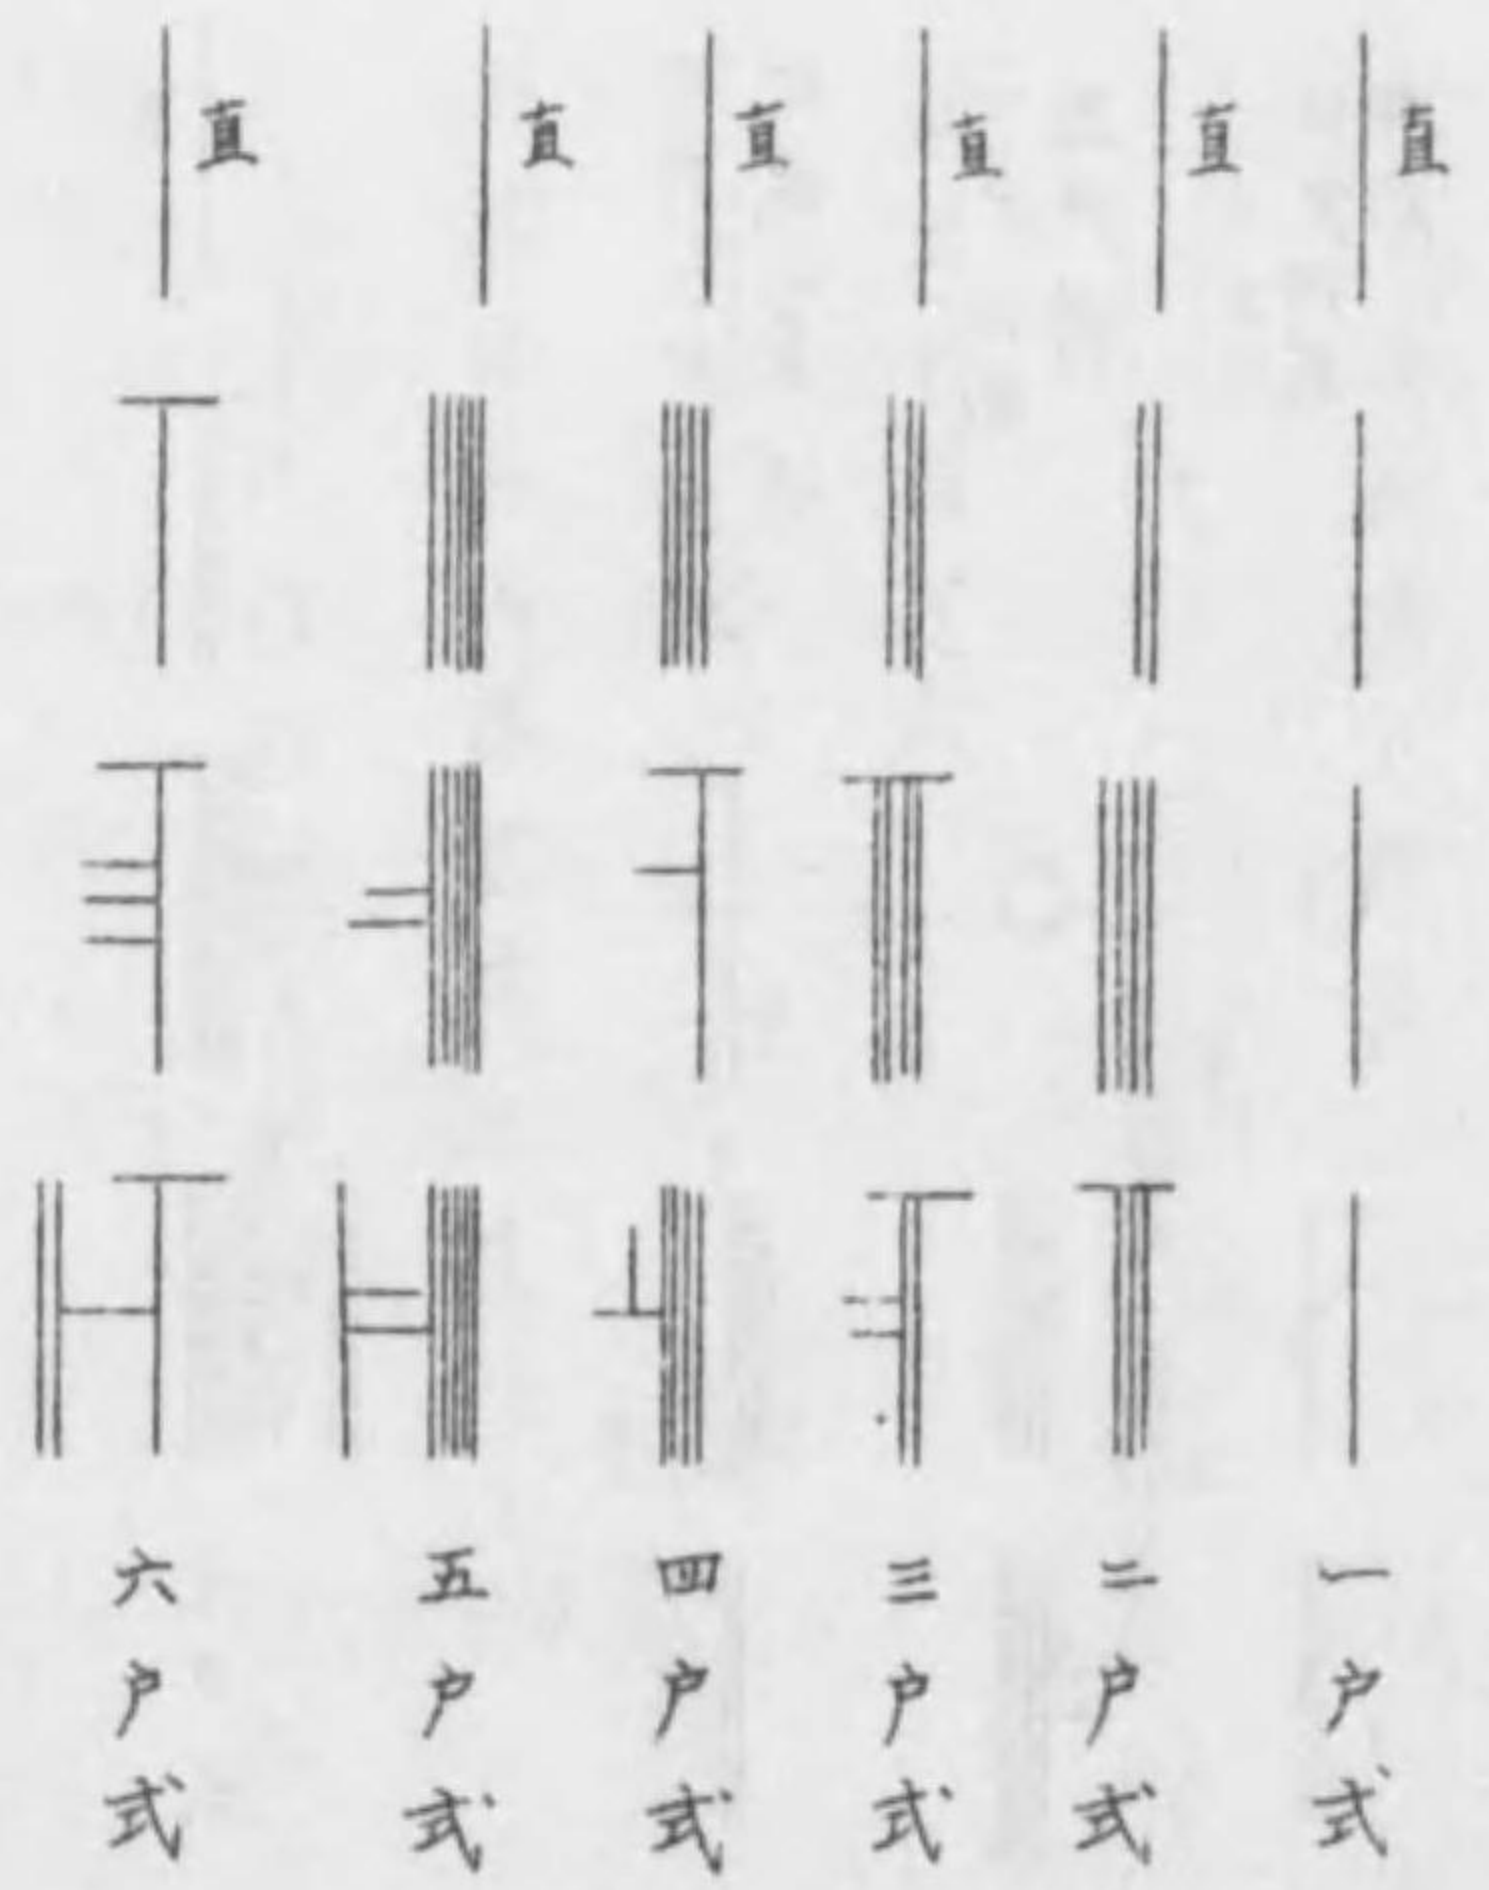 直
一户式
直
二户式
直
三户式
直
四户式
直
五户式
直
六户式